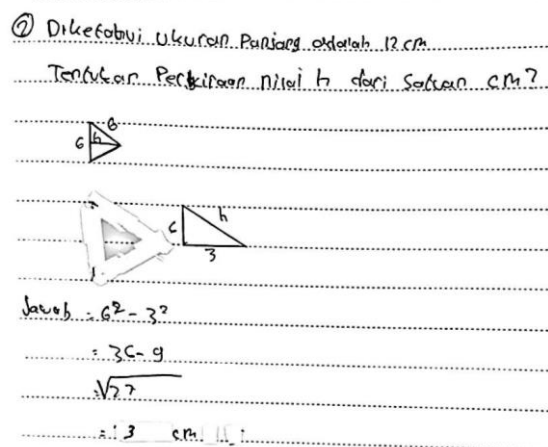 ② Diketahui ukuran Panjang adalah 12 cm
Tentukan Perkiraan nilai h dari Satuan cm?
6
6 h
h
6
3
Jawab = 6² - 3²
= 36 - 9
= √27
= 3 cm